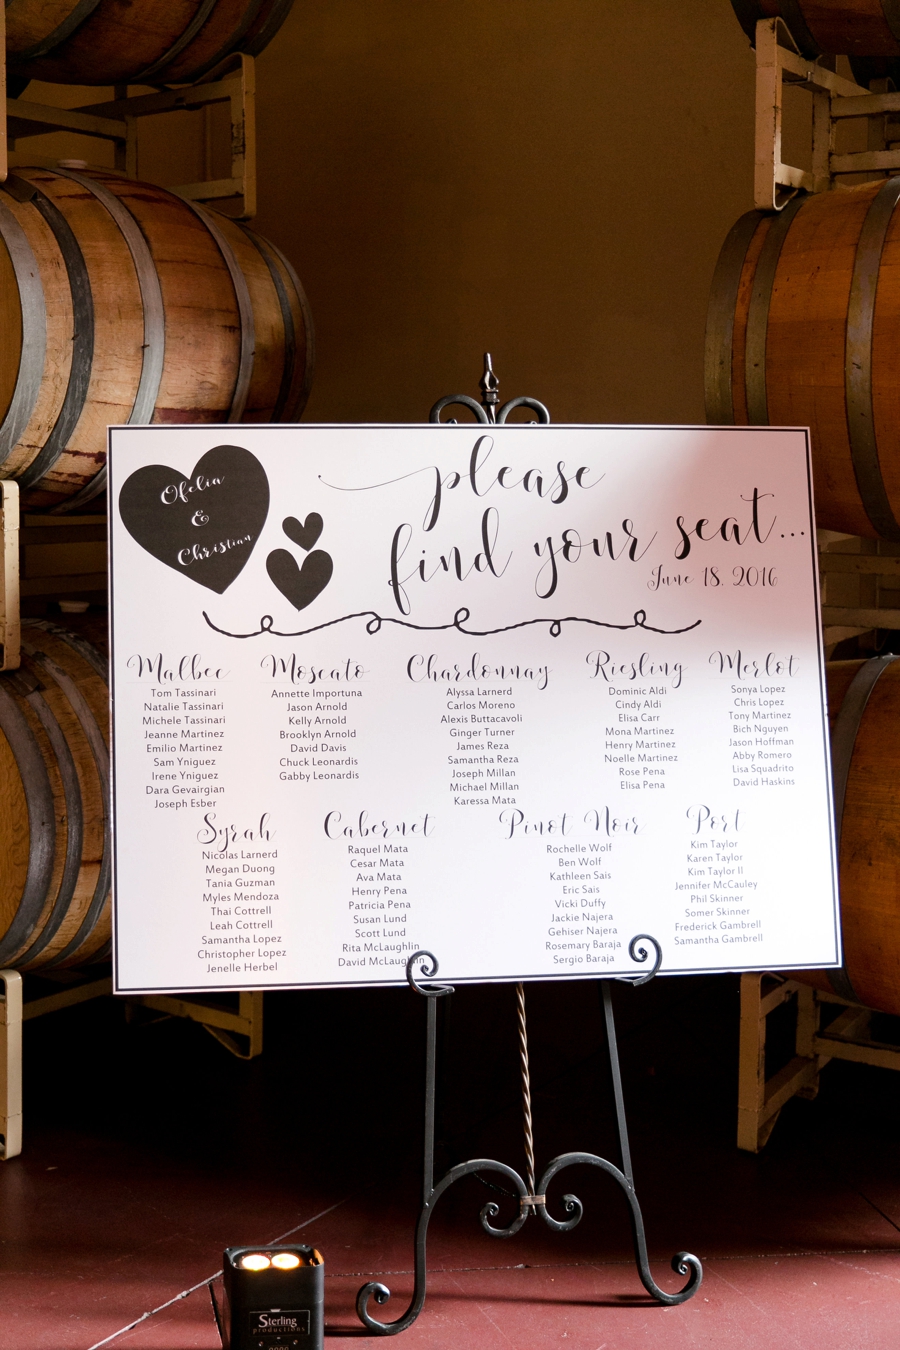 Ofelia
&
Christian
please
find your seat...
June 18, 2016
Malbec
Tom Tassinari
Natalie Tassinari
Michele Tassinari
Jeanne Martinez
Emilio Martinez
Sam Yniguez
Irene Yniguez
Dara Gevairgian
Joseph Esber
Moscato
Annette Importuna
Jason Arnold
Kelly Arnold
Brooklyn Arnold
David Davis
Chuck Leonardis
Gabby Leonardis
Chardonnay
Alyssa Larnerd
Carlos Moreno
Alexis Buttacavoli
Ginger Turner
James Reza
Samantha Reza
Joseph Millan
Michael Millan
Karessa Mata
Riesling
Dominic Aldi
Cindy Aldi
Elisa Carr
Mona Martinez
Henry Martinez
Noelle Martinez
Rose Pena
Elisa Pena
Merlot
Sonya Lopez
Chris Lopez
Tony Martinez
Bich Nguyen
Jason Hoffman
Abby Romero
Lisa Squadrito
David Haskins
Syrah
Nicolas Larnerd
Megan Duong
Tania Guzman
Myles Mendoza
Thai Cottrell
Leah Cottrell
Samantha Lopez
Christopher Lopez
Jenelle Herbel
Cabernet
Raquel Mata
Cesar Mata
Ava Mata
Henry Pena
Patricia Pena
Susan Lund
Scott Lund
Rita McLaughlin
David McLaughlin
Pinot Noir
Rochelle Wolf
Ben Wolf
Kathleen Sais
Eric Sais
Vicki Duffy
Jackie Najera
Gehiser Najera
Rosemary Baraja
Sergio Baraja
Port
Kim Taylor
Karen Taylor
Kim Taylor II
Jennifer McCauley
Phil Skinner
Somer Skinner
Frederick Gambrell
Samantha Gambrell
Sterling
productions